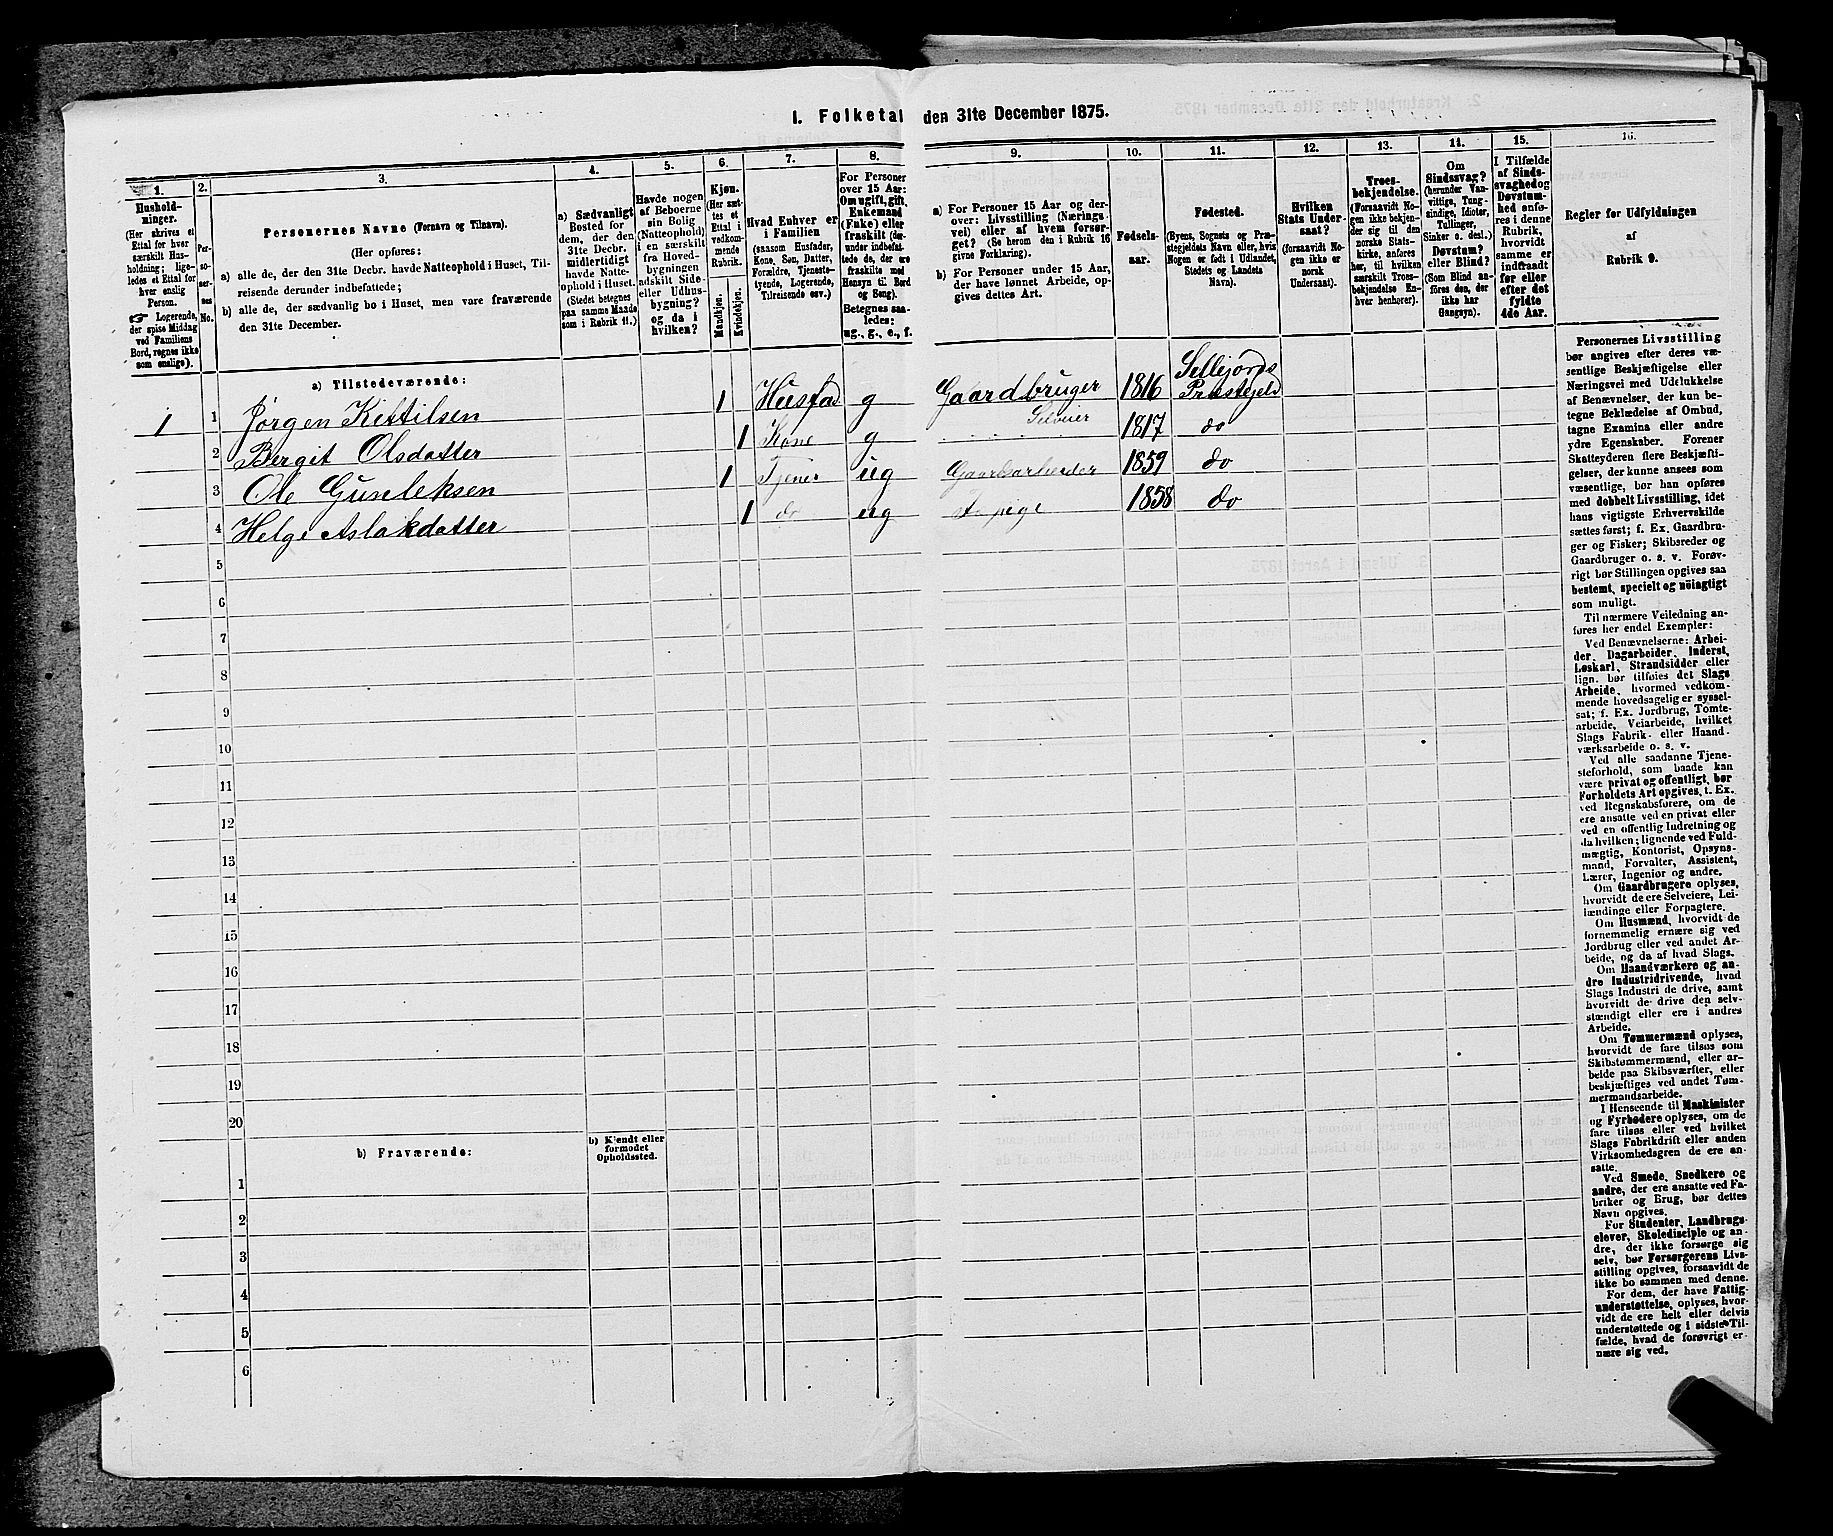 I. Folketal den 31te December 1875.
1.
Hushold-
ninger.
(Her skrives et
Ettal for hver
særskilt Hus-
holdning; lige-
ledes et Ettal for
hver enslig
Person.
☞ Logerende,
der spise Middag
ved Familiens
Bord, regnes ikke
som enslige).
2.
Per-
so-
ner-
nes
No.
3.
Personernes Navne (Fornavn og Tilnavn).
(Her opføres:
a) alle de, der den 31te Decbr. havde Natteophold i Huset, Til-
reisende derunder indbefattede;
b) alle de, der sædvanlig bo i Huset, men vare fraværende
den 31te December.
4.
a) Sædvanligt
Bosted for
dem, der den
31te Decbr.
midlertidigt
havde Natte-
ophold i Huset.
(Stedet betegnes
paa samme Maade
som i Rubrik 11.)
5.
Havde nogen
af Beboerne
sin Bolig
(Natteophold)
i en særskilt
fra Hoved-
bygningen
adskilt Side-
eller Udhus-
bygning?
og da i
hvilken?
6.
Kjøn.
(Her sæt-
tes et
Ettal i
vedkom-
mende
Rubrik.
Mandkjøn.
Kvindekjøn.
7.
Hvad Enhver er
i Familien
(saasom Husfader,
Kone, Søn, Datter,
Forældre, Tjeneste-
tyende, Logerende,
Tilreisende osv.)
8.
For Personer
over 15 Aar:
Om ugift, gift,
Enkemand
(Enke) eller
fraskilt (der-
under indbefat-
tede de, der ere
fraskilte med
Hensyn til Bord
og Seng).
Betegnes saa-
ledes:
ug., g., e., f.
9.
a) For Personer 15 Aar og der-
over: Livsstilling (Nærings-
vei) eller af hvem forsør-
get? (Se herom den i Rubrik 16
givne Forklaring).
b) For Personer under 15 Aar,
der have lønnet Arbeide, op-
gives dettes Art.
10.
Fødsels-
aar.
11.
Fødested.
(Byens, Sognets og Præ-
stegjeldets Navn eller, hvis
Nogen er født i Udlandet,
Stedets og Landets
Navn).
12.
Hvilken
Stats Under-
saat?
(forsaavidt No-
gen ikke er
norsk
Undersaat).
13.
Troes-
bekjendelse.
(Forsaavidt No-
gen ikke bekjen-
der sig til den
norske Stats-
kirke, anføres
her, til hvilken
særskilt Troes-
bekjendelse En-
hver henhører).
14.
Om
Sindssvag?
(herunder Van-
vittige, Tung-
sindige, Idioter,
Tullinger,
Sinker o. desl.).
Døvstum?
eller Blind?
(Som Blind an-
føres den, der
ikke har
Gangsyn).
15.
I Tilfælde
af Sinds-
svaghed og
Døvstum-
hed anfø-
res i denne
Rubrik,
hvorvidt
samme er
indtraadt
før eller
efter det
fyldte
4de Aar.
16.
Regler for Udfyldningen
af
Rubrik 9.
a) Tilstedeværende:
1 1 Jørgen Kittilsen 1 Husfad g Gaardbruger Selveier 1816 Sillejords Præstegjeld
2 Bergit Olsdatter 1 Kone g 1817 do
3 Ole Gunleksen 1 Tjener ug Gaardsarbeider 1859 do
4 Helge Aslakdatter 1 do ug pige 1858 do
5
6
7
8
9
10
11
12
13
14
15
16
17
18
19
20
b) Fraværende:
b) Kjendt eller
formodet
Opholdssted.
1
2
3
4
5
6
Personernes Livsstilling
bør angives efter deres væ-
sentlige Beskjæftigelse eller
Næringsvei med Udelukkelse
af Benævnelser, der kun be-
tegne Beklædelse af Ombud,
tagne Examina eller andre
ydre Egenskaber. Forener
Skatteyderen flere Beskjæfti-
gelser, der kunne ansees som
væsentlige, bør han opføres
med dobbelt Livsstilling, idet
hans vigtigste Erhvervskilde
sættes først; f. Ex. Gaardbru-
ger og Fisker; Skibsreder og
Gaardbruger o. s. v. Forøv-
rigt bør Stillingen opgives saa
bestemt, specielt og nöiagtigt
som muligt.
Til nærmere Veiledning an-
føres her endel Exempler:
Ved Benævnelserne: Arbei-
der, Dagarbeider, Inderst,
Løskarl, Strandsidder eller
lign. bør tilføies det Slags
Arbeide, hvormed vedkom-
mende hovedsagelig er syssel-
sat; f. Ex. Jordbrug, Tomte-
arbeide, Veiarbeide, hvilket
Slags Fabrik- eller Haand-
værksarbeide o. s. v.
Ved alle saadanne Tjene-
steforhold, som baade kan
være privat og offentligt, bør
Forholdets Art opgives, t. Ex.
ved Regnskabsførere, om de
ere ansatte ved en privat eller
ved en offentlig Indretning og
da hvilken; lignende ved Fuld-
mægtig, Kontorist, Opsyns-
mand, Forvalter, Assistent,
Lærer, Ingeniør og andre.
Om Gaardbrugere oplyses,
hvorvidt de ere Selveiere, Lei-
lændinge eller Forpagtere.
Om Husmænd, hvorvidt de
fornemmelig ernære sig ved
Jordbrug eller ved andet Ar-
beide, og da af hvad Slags.
Om Haandværkere og an-
dre Industridrivende, hvad
Slags Industri de drive, samt
hvorvidt de drive den selv-
stændigt eller ere i andres
Arbeide.
Om Tømmermænd oplyses,
hvorvidt de fare tilsøs som
Skibstømmermænd, eller ar-
beide paa Skibsværfter, eller
beskjæftiges ved andet Tøm-
mermandsarbeide.
I Henseende til Maskinister
og Fyrbødere oplyses, om de
fare tilsøs eller ved hvilket
Slags Fabrikdrift eller anden
Virksomhedsgren de ere an-
satte.
Ved Smede, Snedkere og
andre, der ere ansatte ved Fa-
briker og Brug, bør dettes
Navn opgives.
For Studenter, Landbrugs-
elever, Skoledisciple og an-
dre, der ikke forsørge sig
selv, bør Forsørgerens Livs-
stilling opgives, forsaavidt de
ikke bo sammen med denne.
For dem, der have Fattig-
understøttelse, oplyses, hvor-
vidt de ere helt eller delvis
understøttede og i sidste Til-
fælde, hvad de forøvrigt er-
nære sig ved.